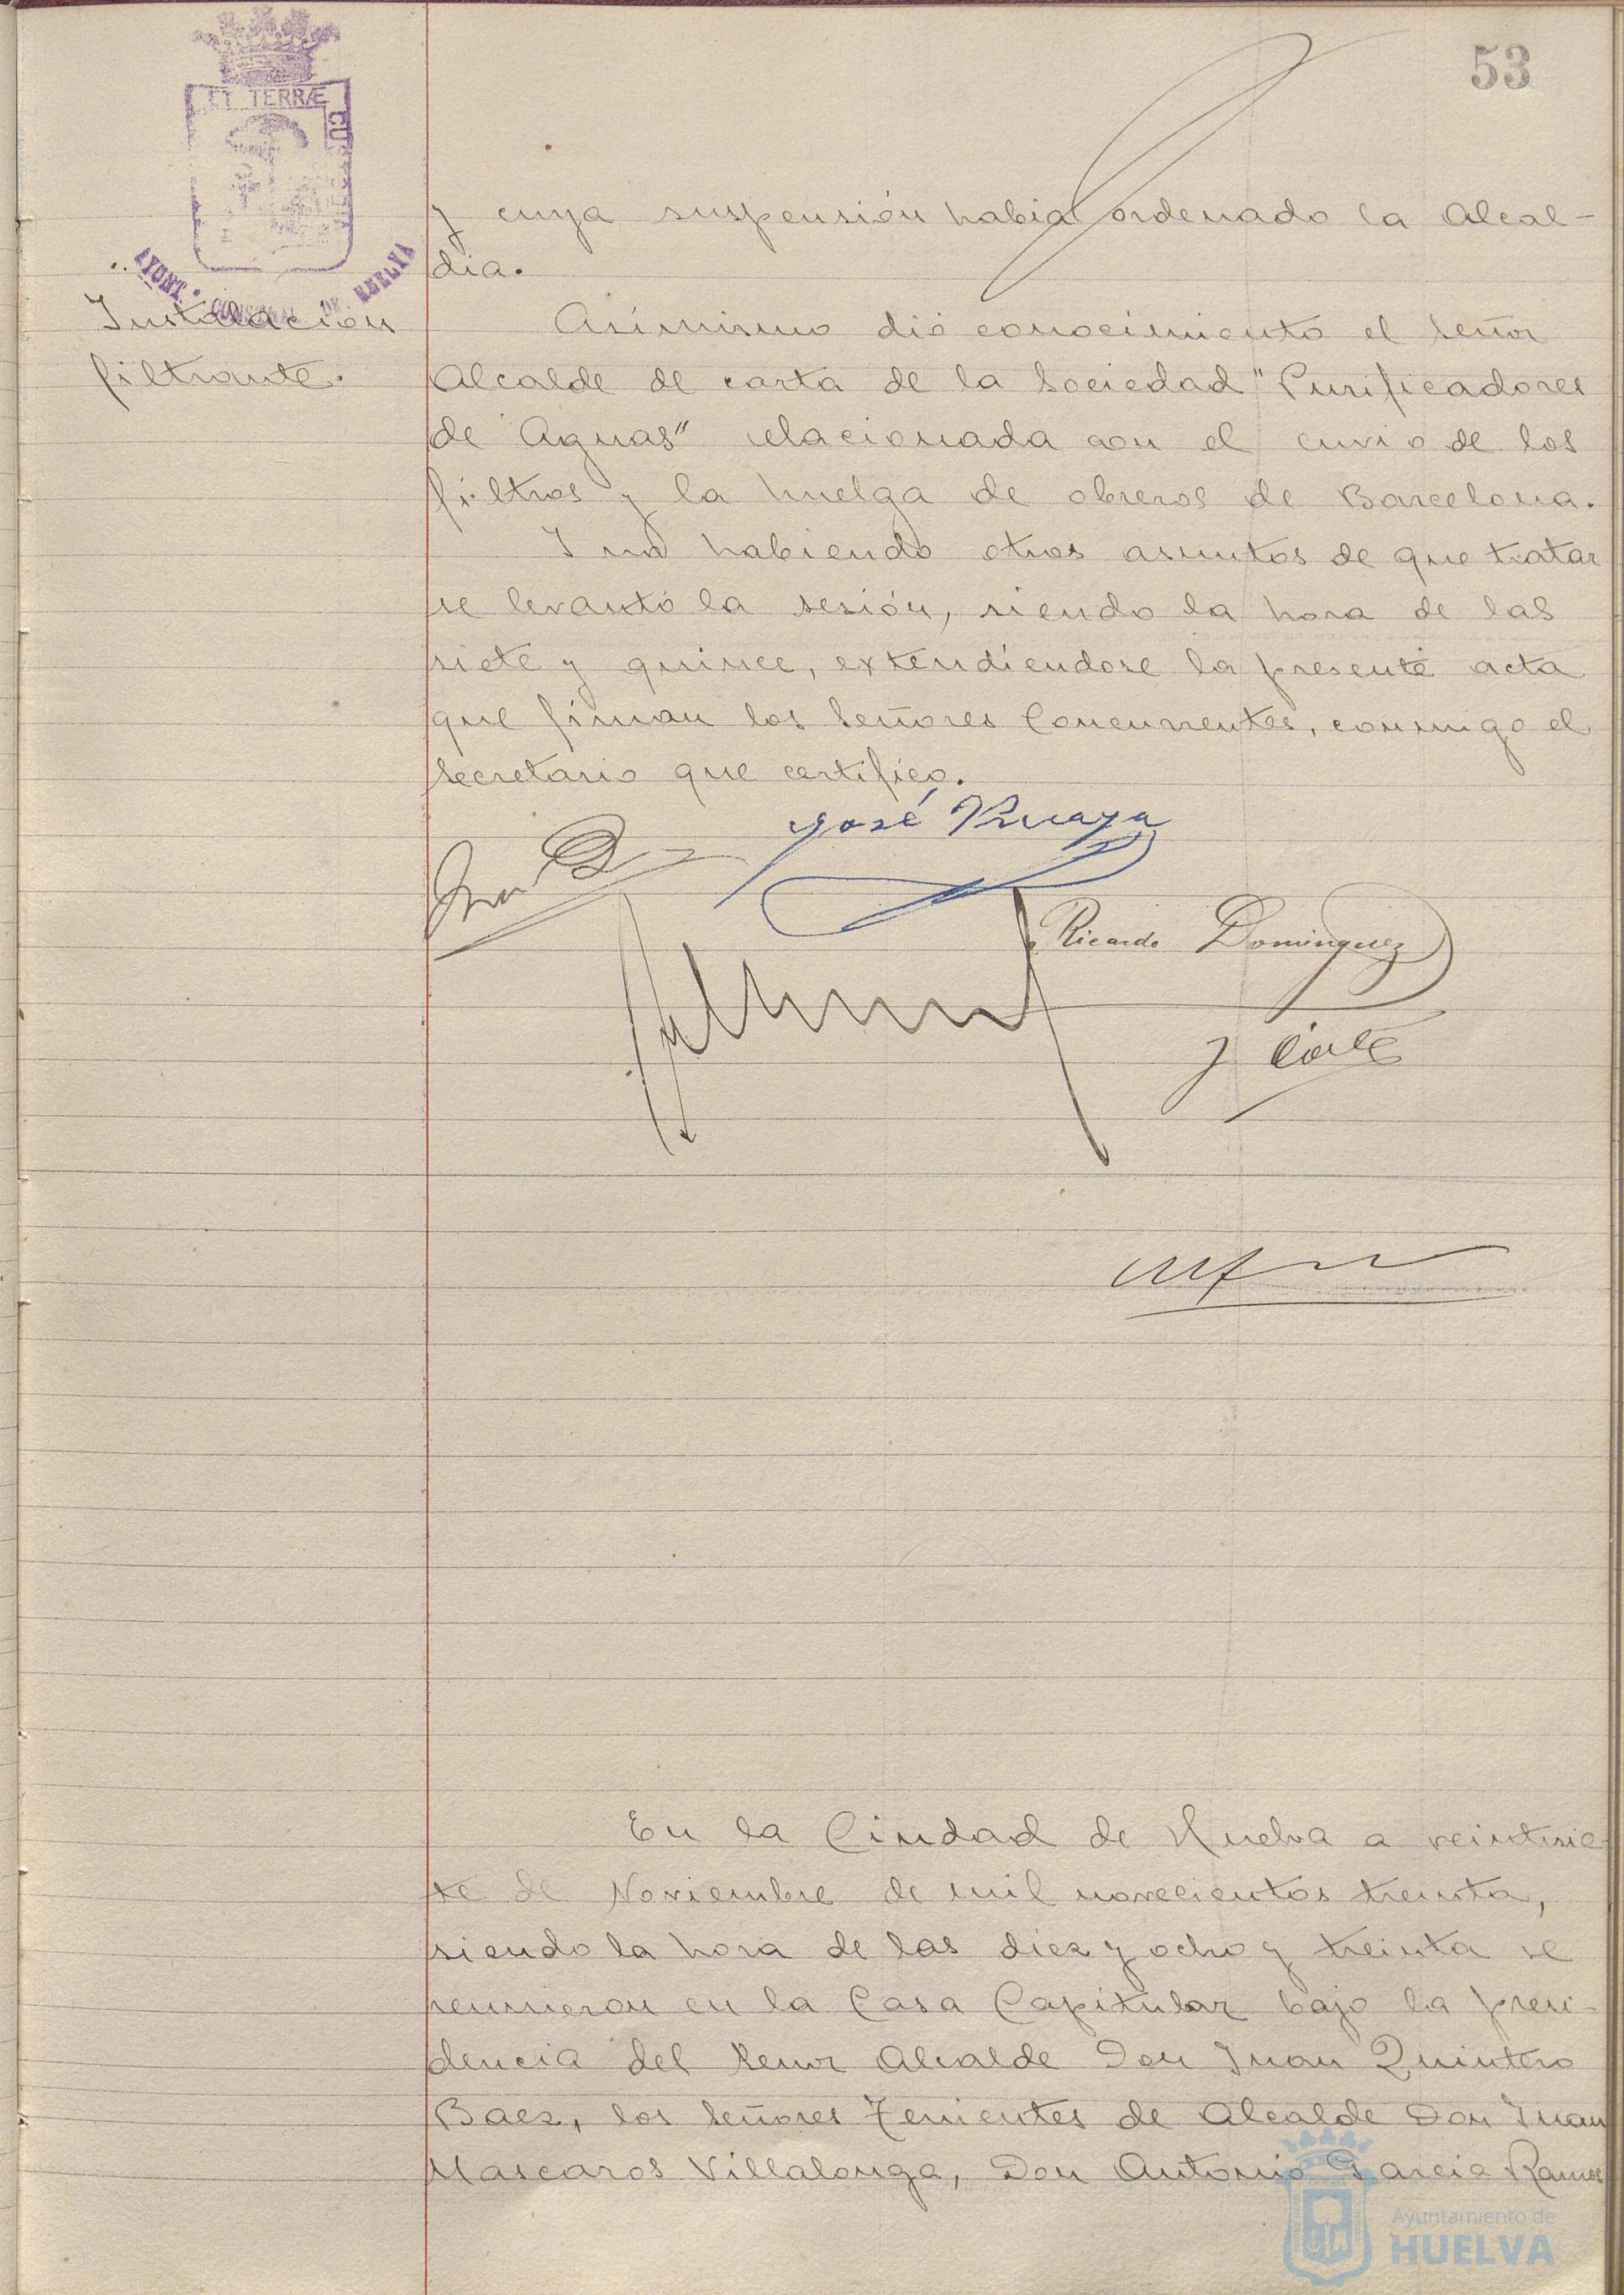 53
ET TERRÆ CU
AYUNT. DE HUELVA
y cuya suspensión habia ordenado la Alcal-
dia.
Instalacion
filtrante.
Asimismo dió conocimiento el señor
Alcalde de carta de la Sociedad "Purificadores
de Aguas" relacionada con el envio de los
filtros y la huelga de obreros de Barcelona.
Y no habiendo otros asuntos de que tratar
se levantó la sesión, siendo la hora de las
siete y quince, extendiendose la presente acta
que firman los Señores Concurrentes, conmigo el
Secretario que certifico.
José
Ricardo Dominguez
En la Ciudad de Huelva a veintisie-
te de Noviembre de mil novecientos treinta,
siendo la hora de las diez y ocho y treinta se
reunieron en la Casa Capitular bajo la presi-
dencia del Señor Alcalde Don Juan Quintero
Baez, los Señores Tenientes de Alcalde Don Juan
Mascaros Villalonga, Don Antonio Garcia Ramos
Ayuntamiento de
HUELVA